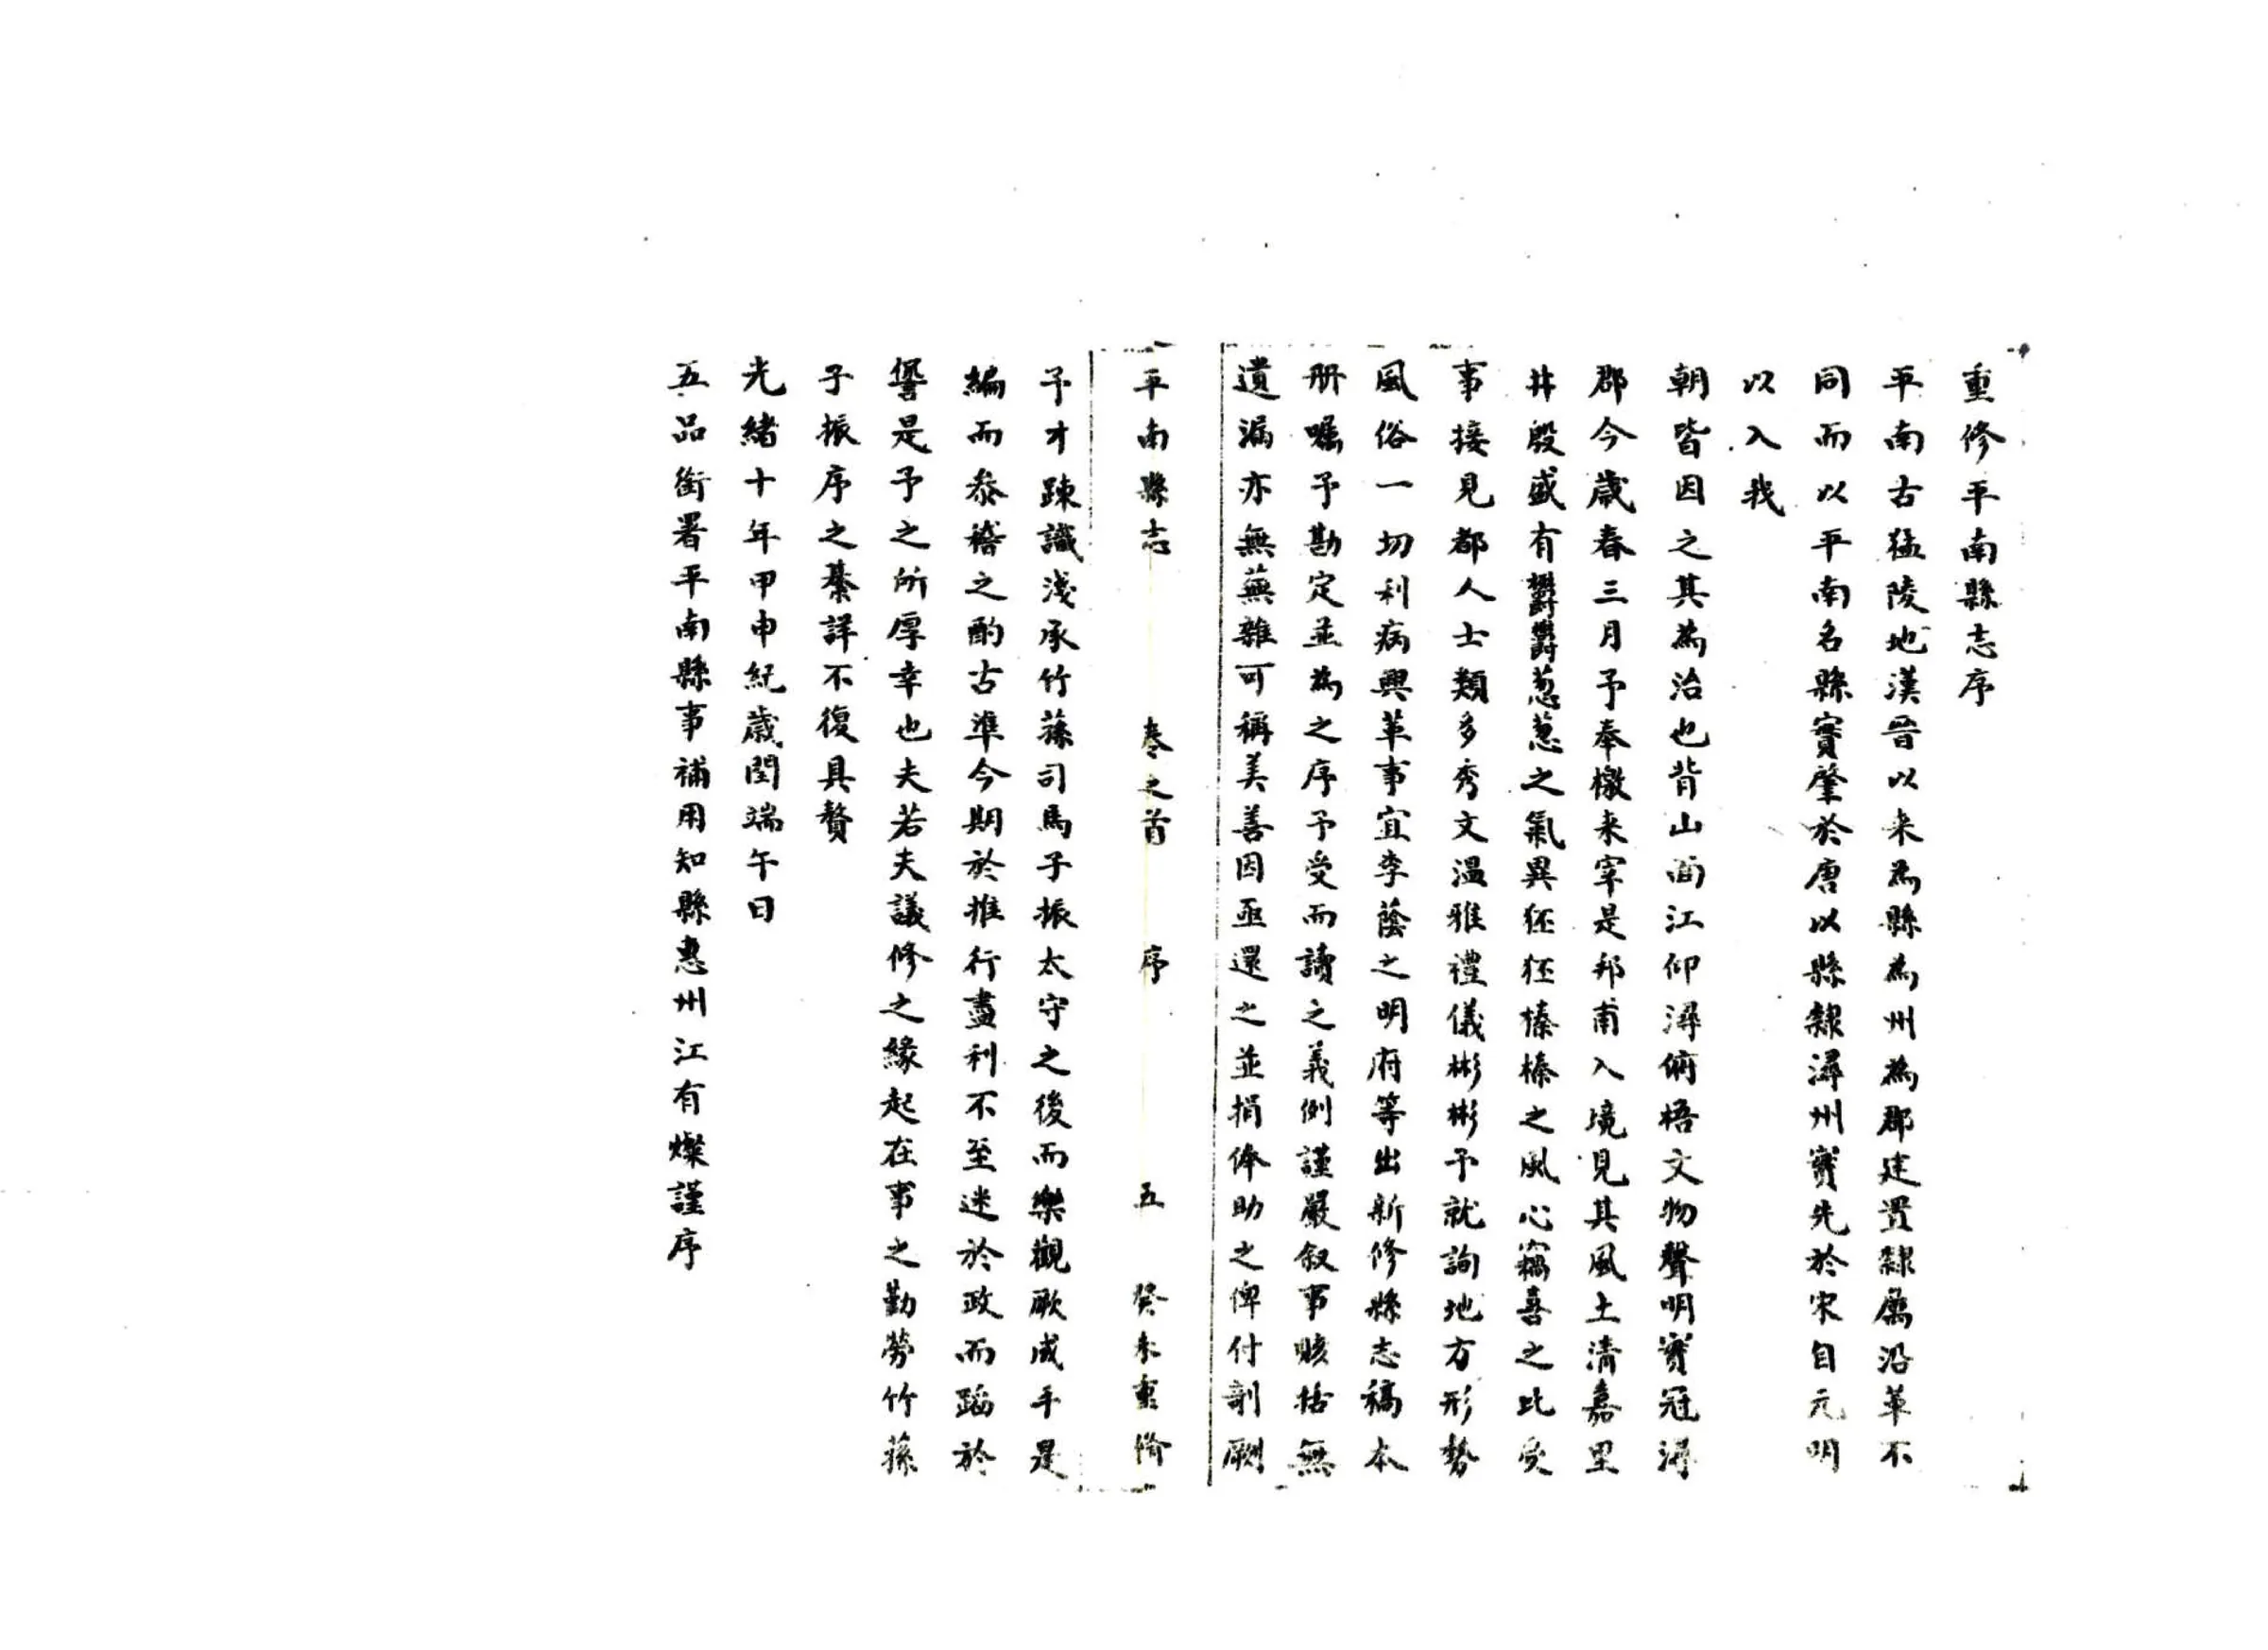 重修平南縣志序
平南古猛陵地漢晉以来為縣為州為郡建置隸屬沿革不
同而以平南名縣實肇於唐以縣隸潯州實先於宋自元明
以入我
朝皆因之其為治也背山面江仰潯俯梧文物聲明實冠潯
郡今歲春三月予奉檄来宰是邦甫入境見其風土清嘉里
井殷盛有鬱鬱葱葱之氣異狉狉榛榛之風心竊喜之比受
事接見都人士類多秀文溫雅禮儀彬彬予就詢地方形勢
風俗一切利病興革事宜李蔭之明府等出新修縣志稿本
冊囑予勘定並為之序予受而讀之義例謹嚴叙事賅括無
遺漏亦無蕪雜可稱美善因亟還之並捐俸助之俾付剞劂
平南縣志 卷之首 序 五 癸未重脩
予才疎識淺承竹蓀司馬子振太守之後而樂觀厥成手是
編而叅稽之酌古準今期於推行盡利不至迷於政而蹈於
愆是予之所厚幸也夫若夫議修之緣起在事之勤勞竹蓀
子振序之綦詳不復具贅
光緒十年甲申紀歲閏端午日
五品銜署平南縣事補用知縣惠州江有燦謹序